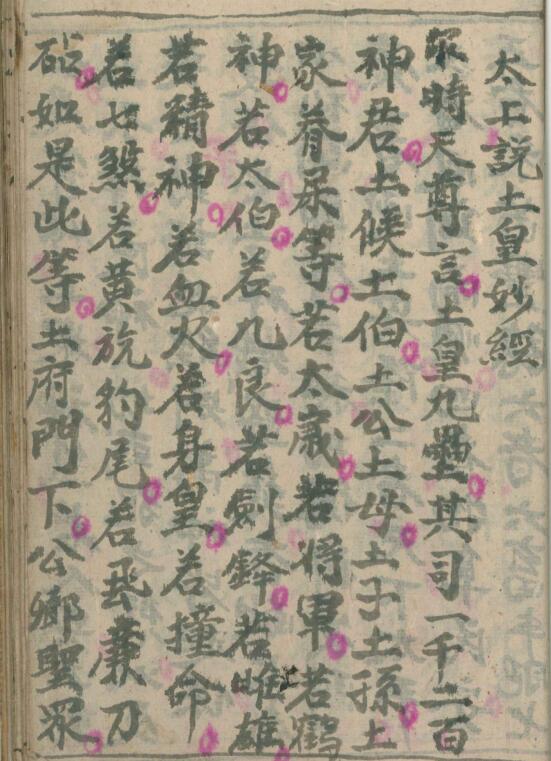 太上説土皇妙經
尔時天尊言土皇九壘其司一千二百
神君土候土伯土公土母土子土孫土
家眷属等若太歲若將軍若鶴
神若太伯若九良若劍鋒若雌雄
若精神若血火若身皇若撞命
若七煞若黄旛豹尾若飛廉刀
砧如是此等土府門下公卿聖眾